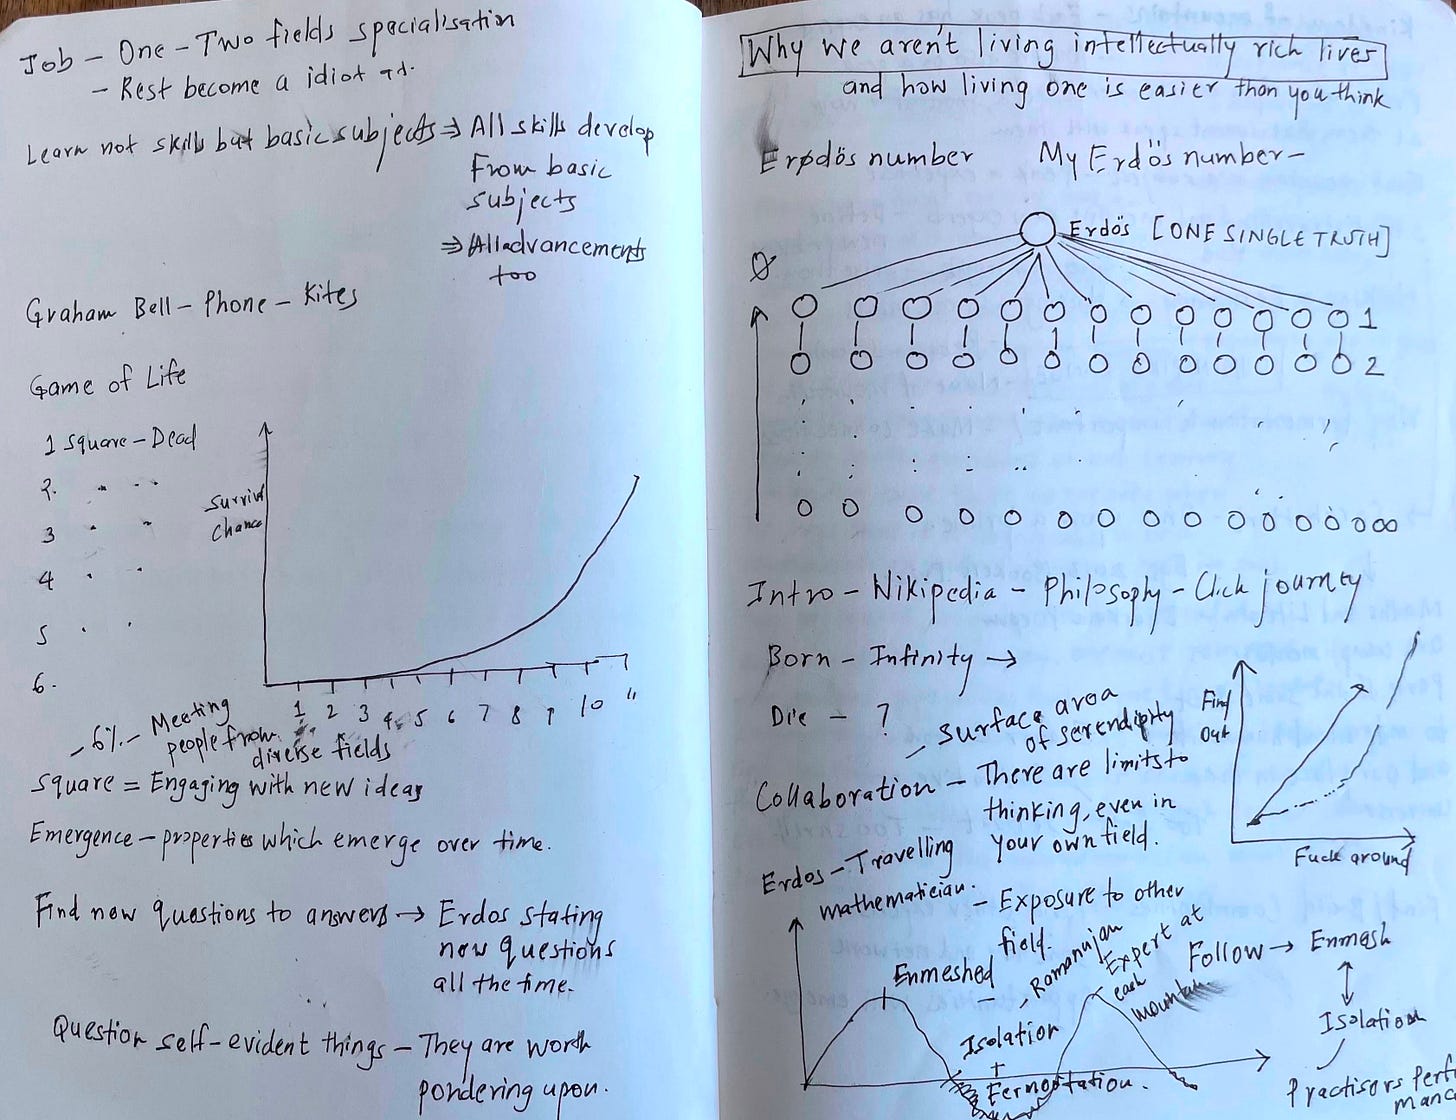 Job - One - Two fields specialisation
- Rest become a idiot
Learn not skills but basic subjects ⇒ All skills develop
From basic
subjects
⇒ All advancements
too
Graham Bell - Phone - Kites
Game of Life
1 square - Dead
2. " "
3 " "
4 " "
5 " "
6.
Survival
Chance
1 2 3 4 5 6 7 8 9 10 11
- 6% - Meeting
people from
diverse fields
square = Engaging with new ideas
Emergence - properties which emerge over time.
Find new questions to answers → Erdos stating
new questions
all the time.
Question self-evident things - They are worth
pondering upon.
Why we aren't living intellectually rich lives
and how living one is easier than you think
Erdös number My Erdös number -
Erdös [ONE SINGLE TRUTH]
0
1
2
Intro - Wikipedia - Philosophy - Click journey
Born - Infinity →
Die - ?
- Surface area
of serendipity
Collaboration - There are limits to
thinking, even in
your own field.
Find
Out
Fuck around
Erdos - Travelling
mathematician.
- Exposure to other
field.
Enmeshed
- Ramanujan
Isolation
+
Fermentation.
Expert at
each
mountain
Follow → Enmesh
↕
Isolation
Practisors